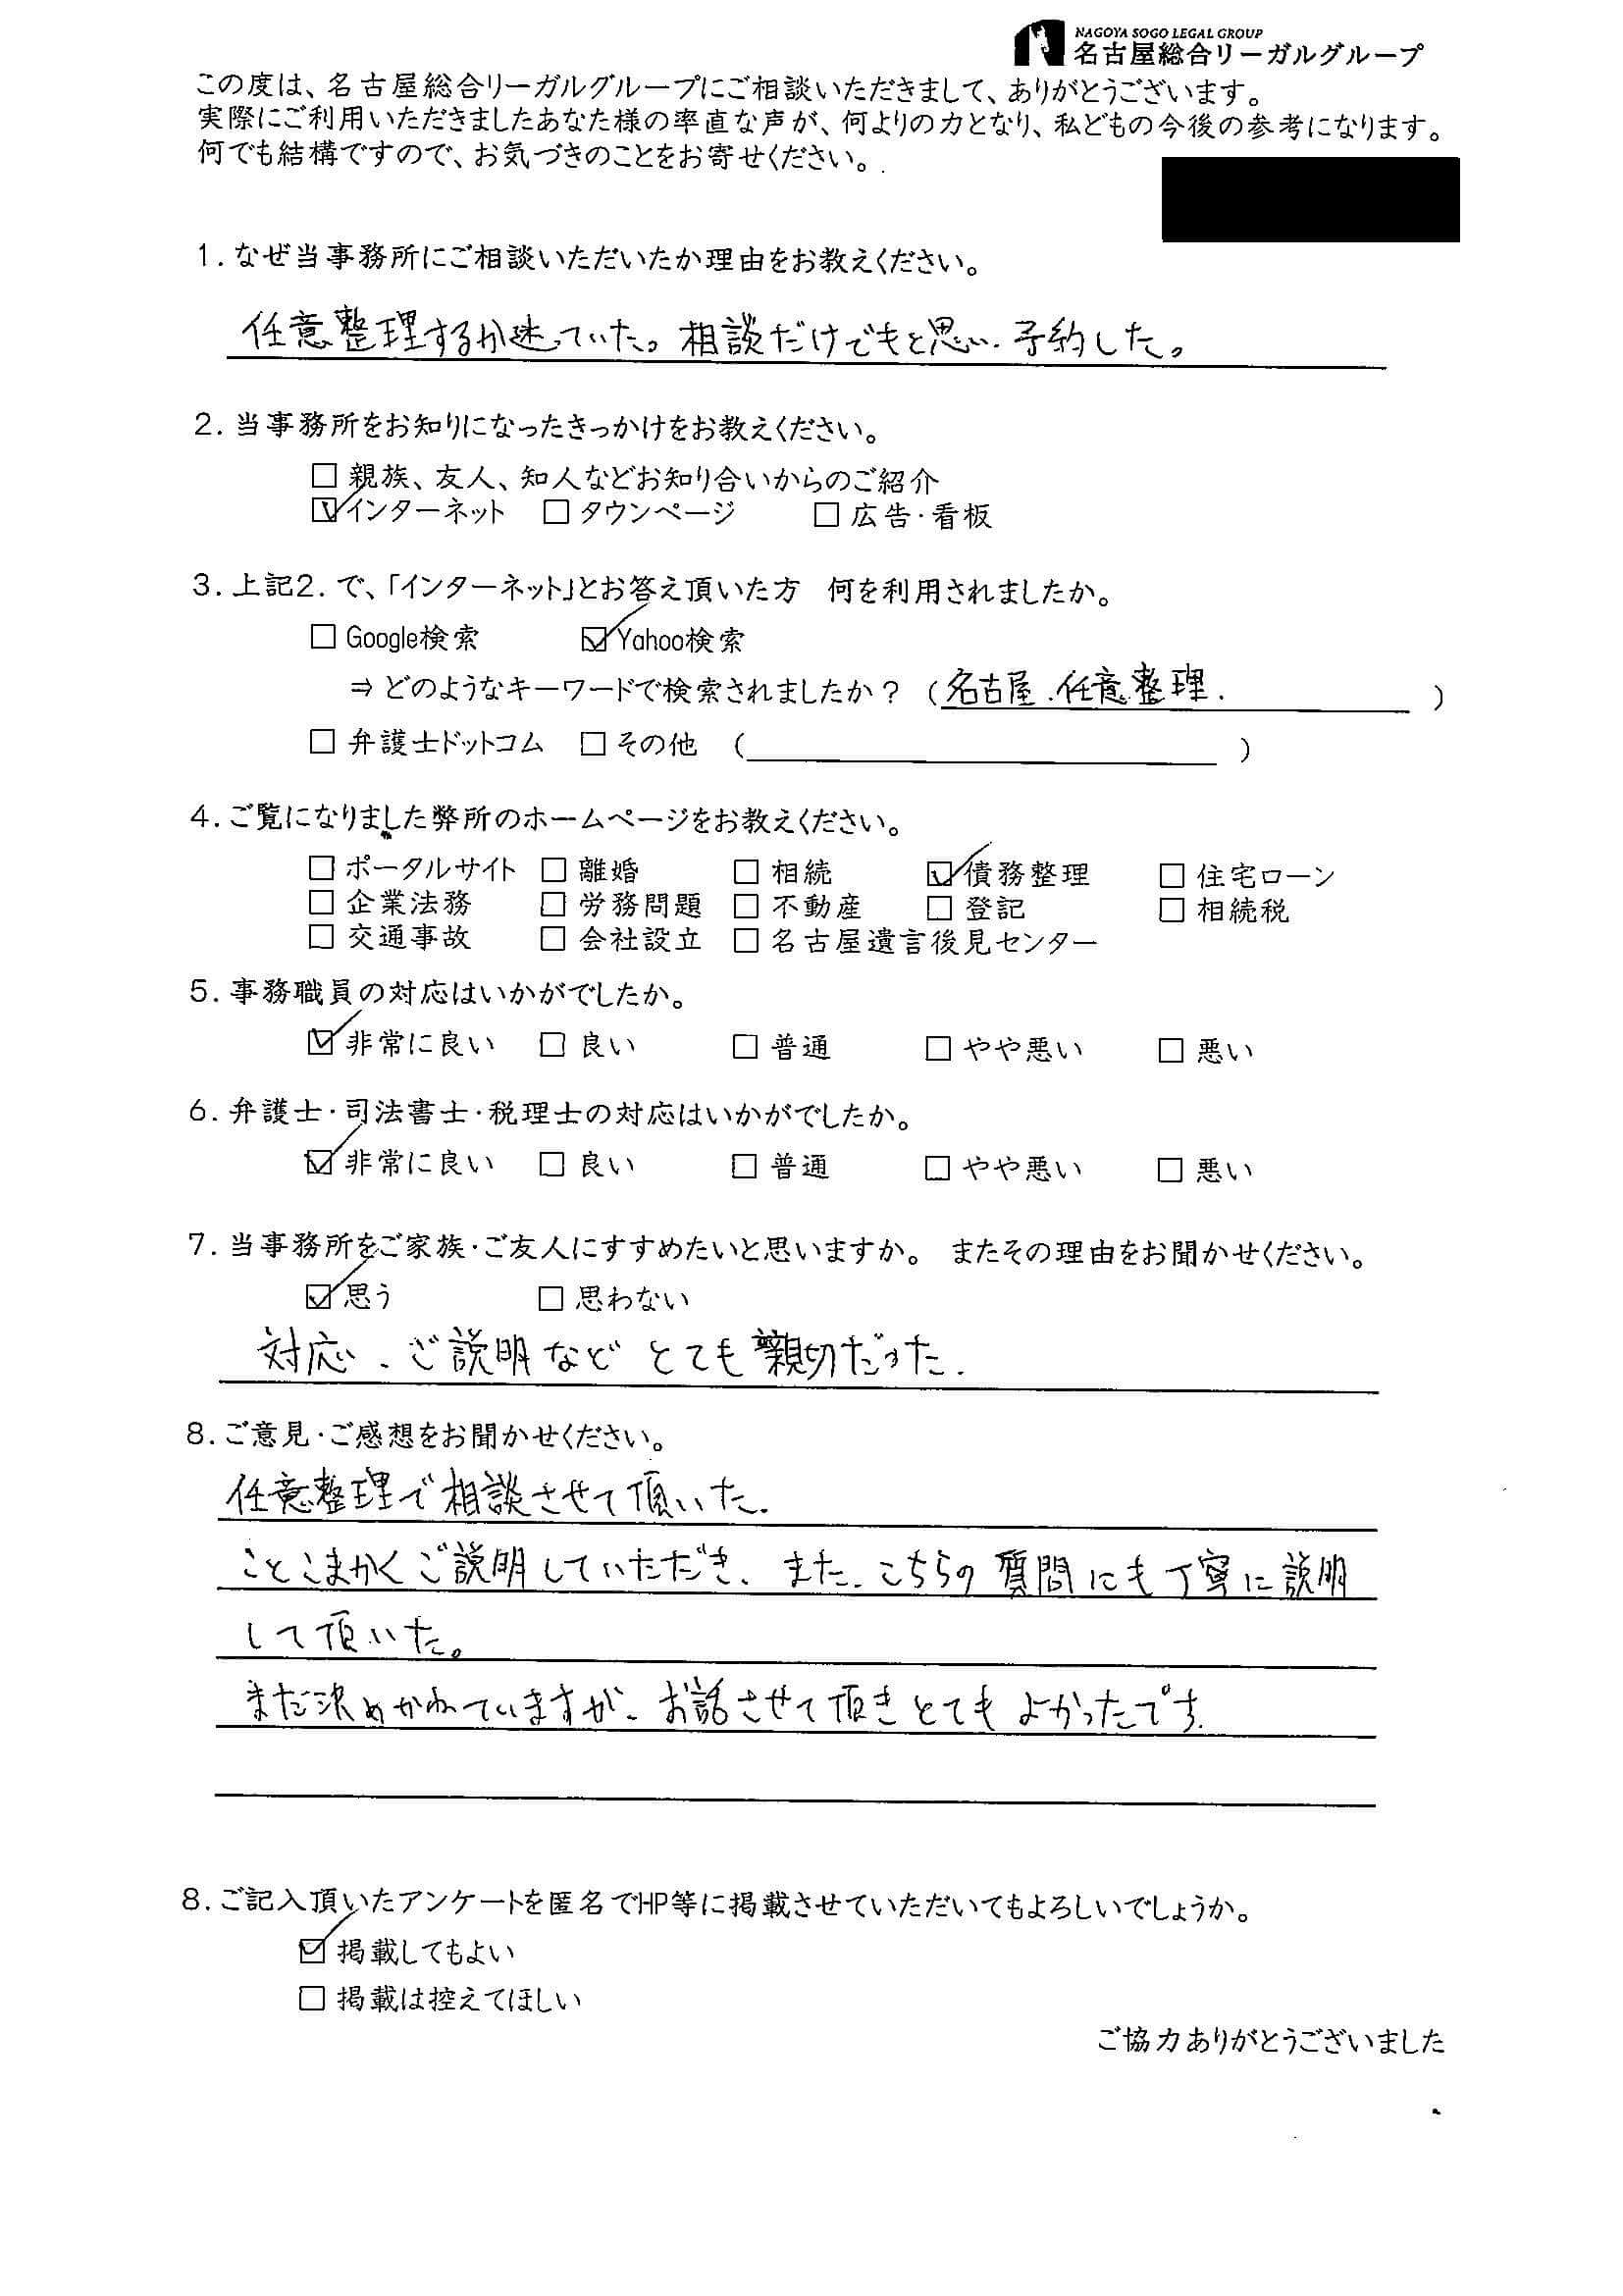 NAGOYA SOGO LEGAL GROUP
名古屋総合リーガルグループ
この度は、名古屋総合リーガルグループにご相談いただきまして、ありがとうございます。
実際にご利用いただきましたあなた様の率直な声が、何よりの力となり、私どもの今後の参考になります。
何でも結構ですので、お気づきのことをお寄せください。
1. なぜ当事務所にご相談いただいたか理由をお教えください。
任意整理するか迷っていた。相談だけでもと思い、予約した。
2. 当事務所をお知りになったきっかけをお教えください。
□ 親族、友人、知人などお知り合いからのご紹介
☑ インターネット □ タウンページ □ 広告・看板
3. 上記2. で、「インターネット」とお答え頂いた方 何を利用されましたか。
□ Google検索 ☑ Yahoo検索
⇒ どのようなキーワードで検索されましたか？ (名古屋.任意整理. )
□ 弁護士ドットコム □ その他 ( )
4. ご覧になりました弊所のホームページをお教えください。
□ ポータルサイト □ 離婚 □ 相続 ☑ 債務整理 □ 住宅ローン
□ 企業法務 □ 労務問題 □ 不動産 □ 登記 □ 相続税
□ 交通事故 □ 会社設立 □ 名古屋遺言後見センター
5. 事務職員の対応はいかがでしたか。
☑ 非常に良い □ 良い □ 普通 □ やや悪い □ 悪い
6. 弁護士・司法書士・税理士の対応はいかがでしたか。
☑ 非常に良い □ 良い □ 普通 □ やや悪い □ 悪い
7. 当事務所をご家族・ご友人にすすめたいと思いますか。 またその理由をお聞かせください。
☑ 思う □ 思わない
対応、ご説明など とても親切だった.
8. ご意見・ご感想をお聞かせください。
任意整理で相談させて頂いた.
ことこまかくご説明していただき、また、こちらの質問にも丁寧に説明
して頂いた。
まだ決めかねていますが、お話させて頂きとてもよかったです.
8. ご記入頂いたアンケートを匿名でHP等に掲載させていただいてもよろしいでしょうか。
☑ 掲載してもよい
□ 掲載は控えてほしい
ご協力ありがとうございました